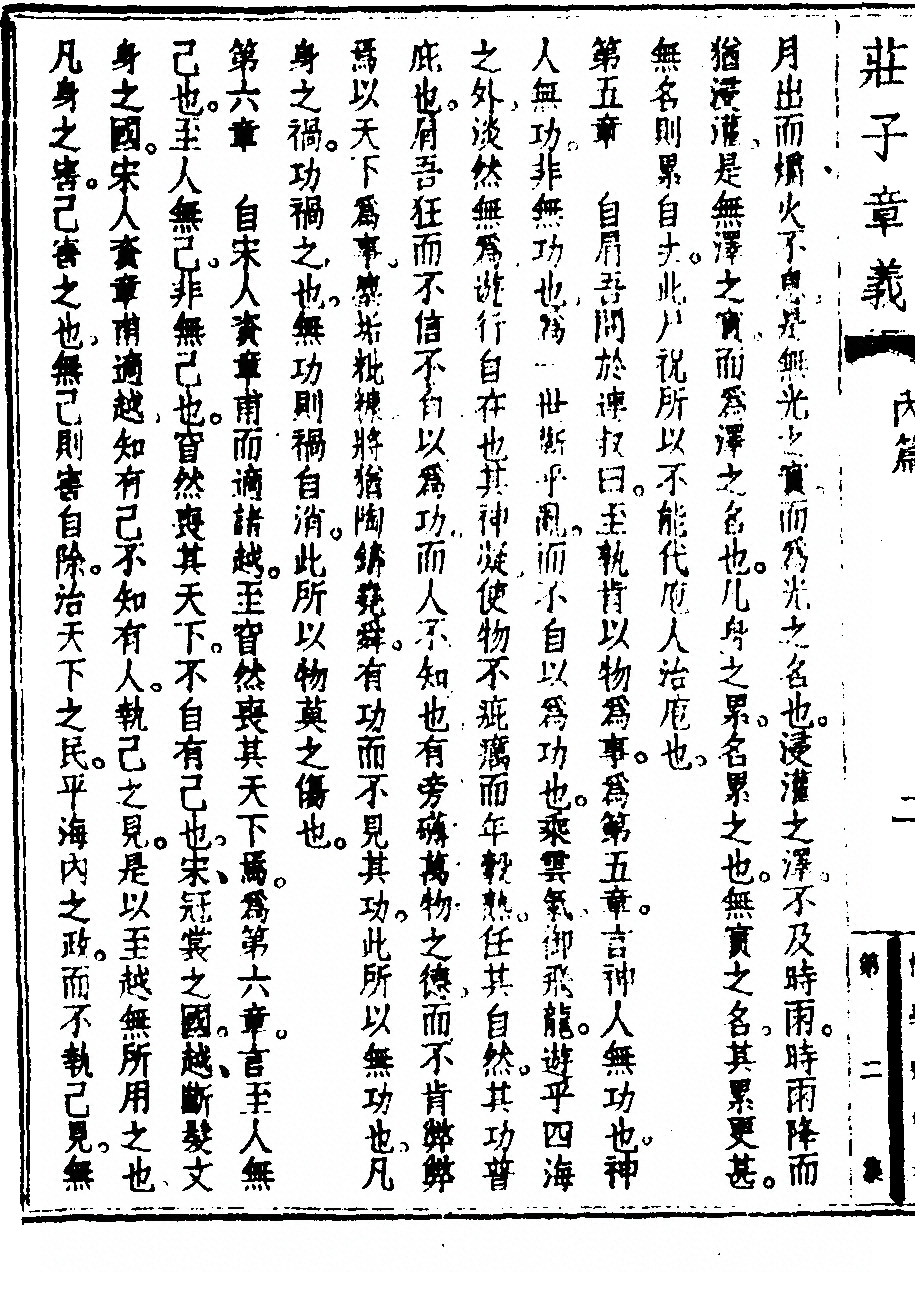 莊子章義 內篇 二 第二集
月出而爝火不息。是無光之實。而爲光之名也。浸灌之澤。不及時雨。時雨降而
猶浸灌。是無澤之實。而爲澤之名也。凡身之累。名累之也。無實之名。其累更甚。
無名則累自去。此尸祝所以不能代庖人治庖也。
第五章　自肩吾問於連叔曰。至孰肯以物爲事。爲第五章。言神人無功也。神
人無功。非無功也。爲一世蘄乎亂。而不自以爲功也。乘雲氣。御飛龍。遊乎四海
之外。淡然無爲。遊行自在也。其神凝。使物不疵癘而年穀熟。任其自然。其功普
庇也。肩吾狂而不信。不自以爲功。而人不知也。有旁礡萬物之德。而不肯弊弊
焉以天下爲事。塵垢粃糠。將猶陶鑄堯舜。有功而不見其功。此所以無功也。凡
身之禍。功禍之也。無功則禍自消。此所以物莫之傷也。
第六章　自宋人資章甫而適諸越。至窅然喪其天下焉。爲第六章。言至人無
己也。至人無己。非無己也。窅然喪其天下。不自有己也。宋、冠裳之國。越、斷髮文
身之國。宋人資章甫適越。知有己不知有人。執己之見。是以至越無所用之也。
凡身之害。己害之也。無己則害自除。治天下之民。平海內之政。而不執己見。無